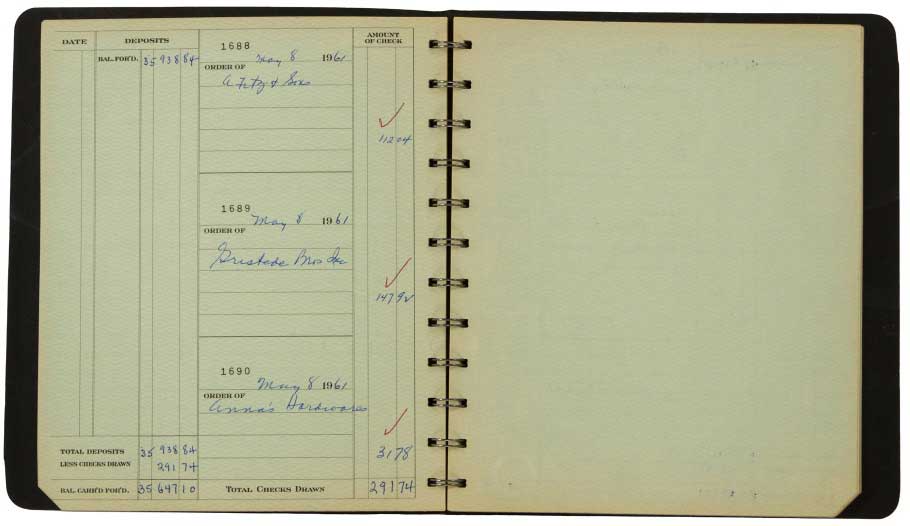 DATE DEPOSITS AMOUNT OF CHECK
BAL. FOR'D. 35 938 84
1688
May 8 1961
ORDER OF
A Fitz & Sons
112 04
1689
May 8 1961
ORDER OF
Gristede Bros Inc
147 92
1690
May 8 1961
ORDER OF
Anna's Hardwares
31 78
TOTAL DEPOSITS 35 938 84
LESS CHECKS DRAWN 291 74
BAL. CARR'D FOR'D. 35 647 10
TOTAL CHECKS DRAWN 291 74